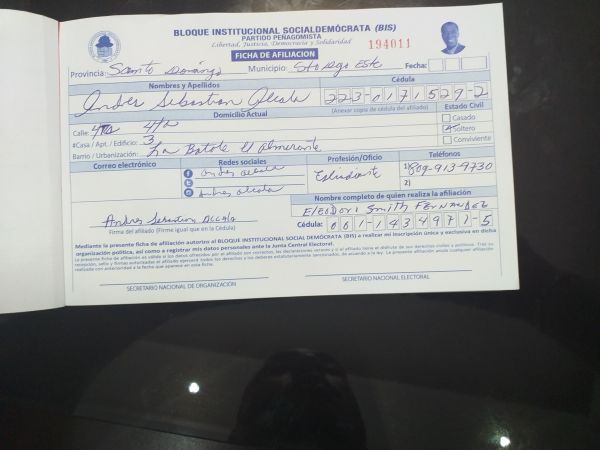 BLOQUE INSTITUCIONAL SOCIALDEMÓCRATA (BIS)
PARTIDO PEÑAGOMISTA
Libertad, Justicia, Democracia y Solidaridad
FICHA DE AFILIACION
194011
Provincia: Santo Domingo Municipio: Sto Dgo Este Fecha:
Nombres y Apellidos Cédula
Andres Sebastian Alcala 223-0171529-2
(Anexar copia de cédula del afiliado)
Domicilio Actual Estado Civil
Calle: 4ta 4ta Casado
#Casa / Apt. / Edificio: 3 Soltero
Barrio / Urbanización: El almirante Conviviente
Correo electrónico Redes sociales Profesión/Oficio Teléfonos
andres alcala Estudiante 1) 809-913-9730
2)
Andres alcala
Nombre completo de quien realiza la afiliación
Andres Sebastian Alcala Eleodori Smith Fernandez
Firma del afiliado (Firme igual que en la Cédula) Cédula: 001-1434971-5
Mediante la presente ficha de afiliación autorizo al BLOQUE INSTITUCIONAL SOCIAL DEMÓCRATA (BIS) a realizar mi inscripción única y exclusiva en dicha
organización política; así como a registrar mis datos personales ante la Junta Central Electoral.
SECRETARIO NACIONAL DE ORGANIZACIÓN SECRETARIO NACIONAL ELECTORAL